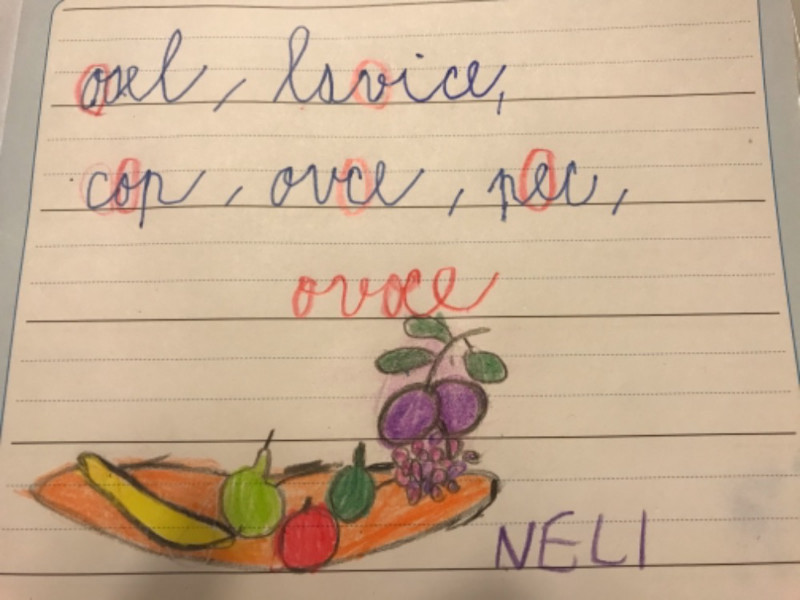 osel, lavice,
cop, ovce, pec,
ovoce
NELI